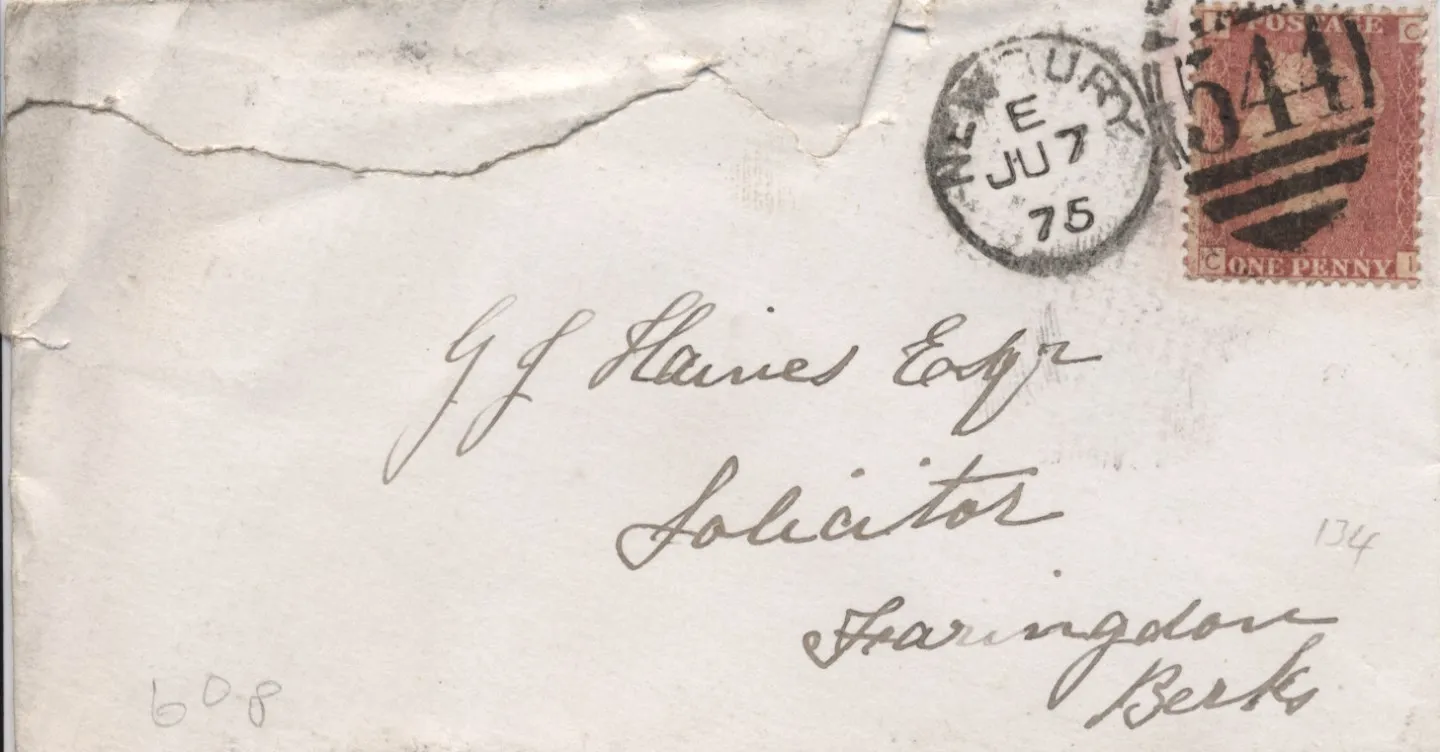 POSTAGE
I C
544
C ONE PENNY I
NEWBURY
E
JU 7
75
G J Haines Esqr
Solicitor
134
Faringdon
Berks
60p